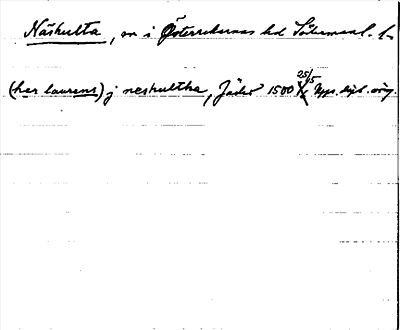 Näshulta, sn i Österrekarnes hd Söderman l. l-
(her laurens) j neshultha, Jäder 1500 25/5 Upps. dipl. orig.